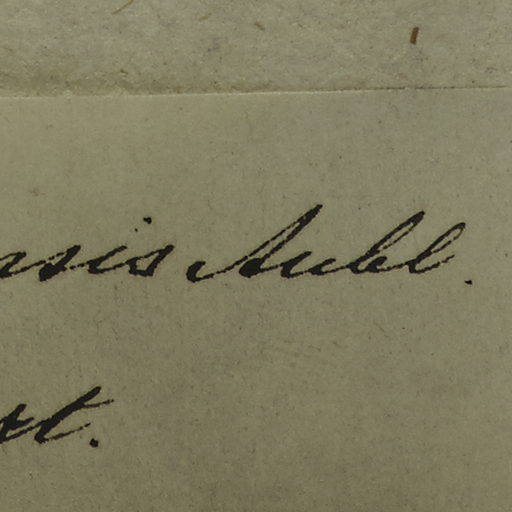 nsis Aubl.
st.